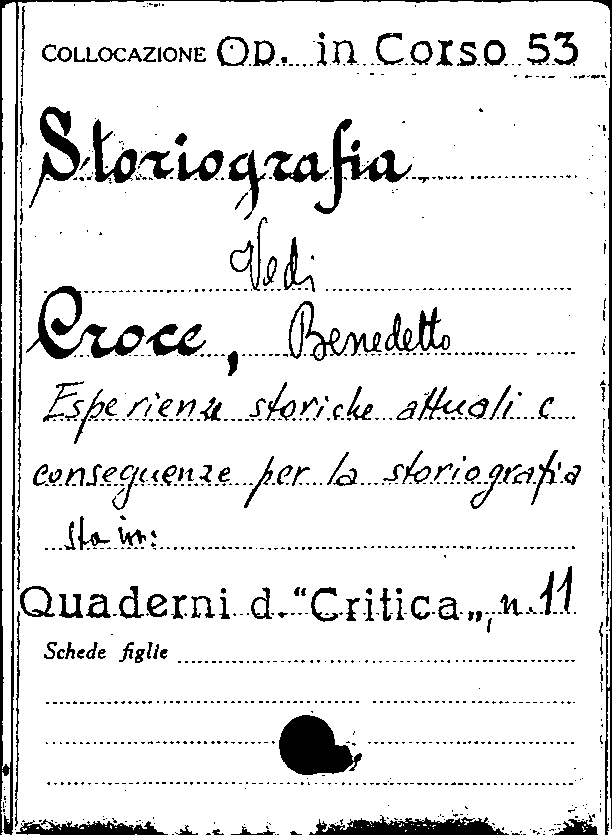 COLLOCAZIONE Op. in Corso 53
Storiografia
Vedi
Croce, Benedetto
Esperienze storiche attuali e
conseguenze per la storiografia
sta in:
Quaderni d. "Critica", n. 11
Schede figlie